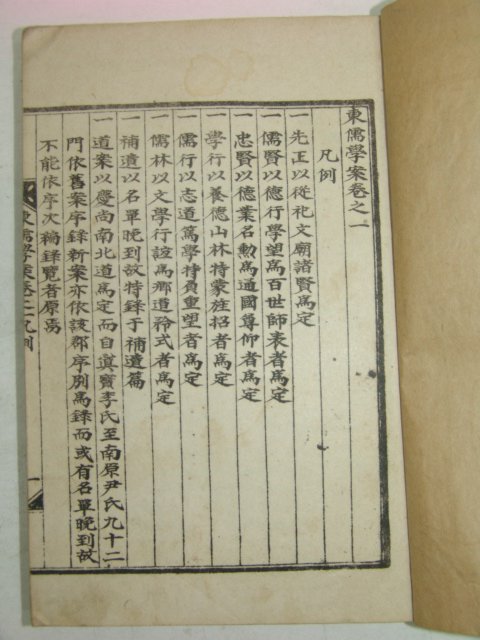 東儒學案卷之一
凡例
一先正以從祀文廟諸賢爲定
一儒賢以德行學望爲百世師表者爲定
一忠賢以德業名勳爲通國尊仰者爲定
一學行以養德山林特蒙旌招者爲定
一儒行以志道篤學特負重望者爲定
一儒林以文學行誼爲鄉道矜式者爲定
一補遺以名單晚到故特錄于補遺篇
一道案以慶尚南北道爲定而自眞寶李氏至南原尹氏九十二
門依舊案序錄新案亦依該郡序別爲錄而或有名單晚到故
不能依序次編錄覽者原焉
東儒學案卷之一凡例
一